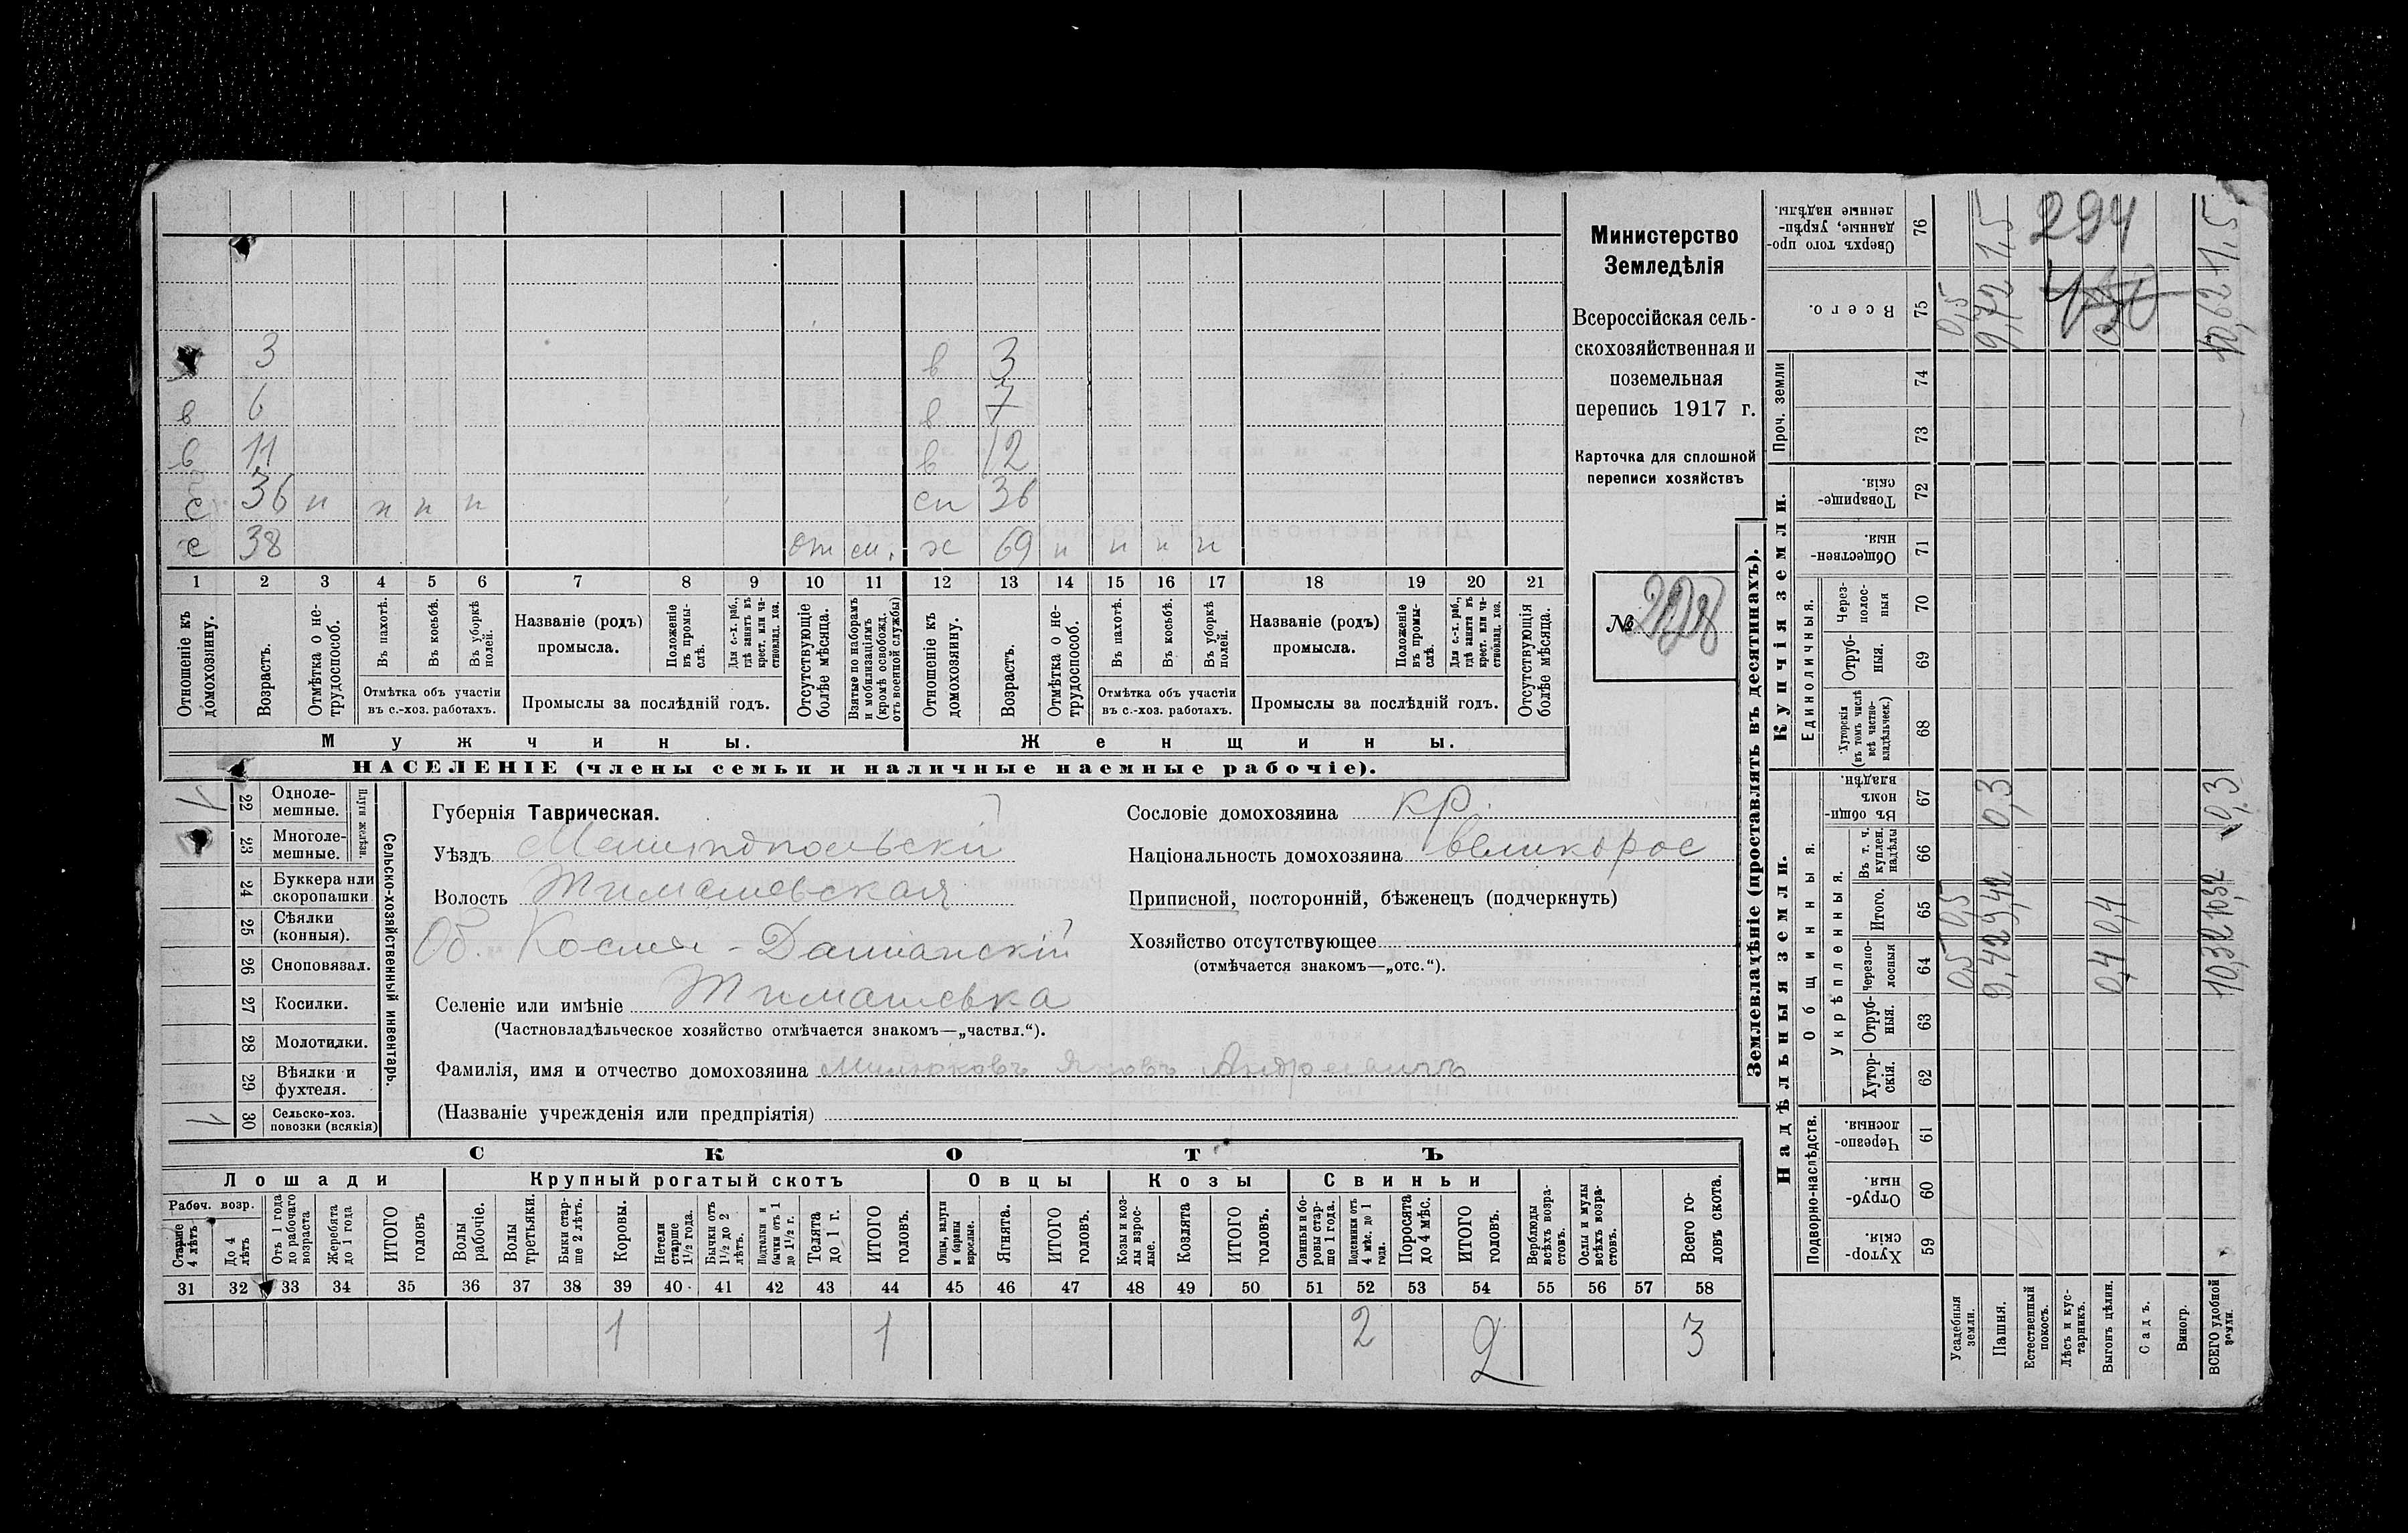 Министерство
Земледѣлія
Всероссійская сель-
скохозяйственная и
поземельная
перепись 1917 г.
Карточка для сплошной
переписи хозяйствъ
№
3 в 3
в 6 в 7
в 11 в 12
с 36 н н н н сп 36
с 38 от 69 н н н н
1 2 3 4 5 6 7 8 9 10 11 12 13 14 15 16 17 18 19 20 21
Отношеніе къ домохозяину.
Возрастъ.
Отмѣтка о не-трудоспособ.
Въ пахотѣ.
Въ косьбѣ.
Въ уборкѣ полей.
Отмѣтка объ участіи
въ с.-хоз. работахъ.
Названіе (родъ)
промысла.
Положеніе въ промы-слѣ.
Для с.-х. раб., гдѣ занятъ въ крест. или ча-стновлад. хоз.
Промыслы за послѣдній годъ.
Отсутствующіе болѣе мѣсяца.
Взятые по наборамъ и мобилизаціямъ (кромѣ освобожд. отъ военной службы)
Отношеніе къ домохозяину.
Возрастъ.
Отмѣтка о не-трудоспособ.
Въ пахотѣ.
Въ косьбѣ.
Въ уборкѣ полей.
Отмѣтка объ участіи
въ с.-хоз. работахъ.
Названіе (родъ)
промысла.
Положеніе въ промы-слѣ.
Для с.-х. раб., гдѣ занята въ крест. или ча-стновлад. хоз.
Промыслы за послѣдній годъ.
Отсутствующія болѣе мѣсяца.
Мужчины.
Женщины.
НАСЕЛЕНІЕ (члены семьи и наличные наемные рабочіе).
1 22 Однолемешные.
23 Многолемешные.
Плуги желѣзн.
24 Буккера или скоропашки
25 Сѣялки (конныя).
26 Сноповязал.
27 Косилки.
28 Молотилки.
29 Вѣялки и фухтеля.
1 30 Сельско-хоз. повозки (всякія)
Сельско-хозяйственный инвентарь.
Губернія Таврическая.
Уѣздъ Мелитопольскій
Волость Тимашевская
Об. Косма-Даміанскій
Селеніе или имѣніе Тимашевка
(Частновладѣльческое хозяйство отмѣчается знакомъ—„частвл.“).
Фамилія, имя и отчество домохозяина Милюковъ Яковъ Андреевичъ
(Названіе учрежденія или предпріятія)
Сословіе домохозяина кр.
Національность домохозяина великорос
Приписной, посторонній, бѣженецъ (подчеркнуть)
Хозяйство отсутствующее
(отмѣчается знакомъ—„отс.“).
СКОТЪ
Лошади
Крупный рогатый скотъ
Овцы
Козы
Свиньи
Рабоч. возр.
Старше 4 лѣтъ
До 4 лѣтъ
Отъ 1 года до рабочаго возраста
Жеребята до 1 года
ИТОГО головъ
Волы рабочіе.
Волы третьяки.
Быки стар-ше 2 лѣтъ.
Коровы.
Нетели старше 1½ года.
Бычки отъ 1½ до 2 лѣтъ.
Подтелки и бычки отъ 1 до 1½ г.
Телята до 1 г.
ИТОГО головъ.
Овцы, валухи и бараны взрослые.
Ягнята.
ИТОГО головъ.
Козы и коз-лы взрос-лые.
Козлята
ИТОГО головъ.
Свиньи и бо-ровы стар-ше 1 года.
Подсвинки отъ 4 мѣс. до 1 года.
Поросята до 4 мѣс.
ИТОГО головъ.
Верблюды всѣхъ возра-стовъ.
Ослы и мулы всѣхъ возра-стовъ.
Всего го-ловъ скота.
31 32 33 34 35 36 37 38 39 40 41 42 43 44 45 46 47 48 49 50 51 52 53 54 55 56 57 58
1 1 2 2 3
Землевладѣніе (проставлять въ десятинахъ).
Надѣльныя земли.
Купчія земли.
Проч. земли
Подворно-наслѣдств.
Общинныя.
Укрѣпленныя.
Единоличныя.
Хутор-скія. 59
Отруб-ныя. 60
Черезпо-лосныя. 61
Хутор-скія. 62
Отруб-ныя. 63
Черезпо-лосныя 64
Итого. 65
Въ т. ч. куплен. надѣлы 66
Въ общин-номъ владѣн. 67
Хуторскія (въ томъ числѣ всѣ частно-владѣльческ.) 68
Отруб-ныя. 69
Через-полос-ныя 70
Обществен-ныя. 71
Товарище-скія. 72
73
74
Всего. 75
Сверхъ того про-данные, укрѣп-ленные надѣлы. 76
Усадебныя земли. 0,5 0,5 0,5
Пашня. 9,42 9,42 0,3 9,72 1,5
Естественный покосъ.
Лѣсъ и кус-тарникъ.
Выгонъ цѣлин. 0,4 0,4
Садъ.
Виногр.
ВСЕГО удобной земли. 10,32 10,32 0,3 10,62 1,5
294